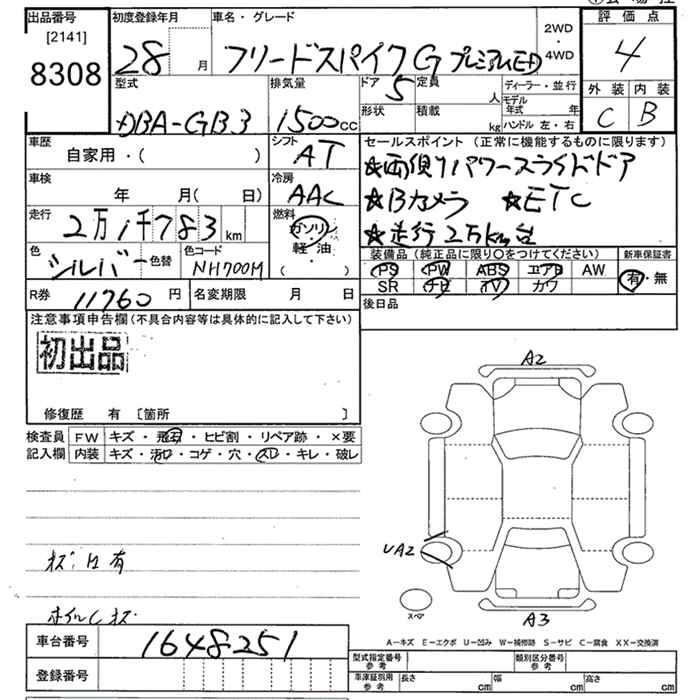 出品番号 初度登録年月 車名・グレード 2WD 評価点
[2141] 28 月 フリードスパイクG プレミアムED ・ 4
8308 4WD
型式 排気量 ドア 5 定員 人 ディーラー・並行 外装 内装
DBA-GB3 1500cc 形状 積載 kg モデル年式 年 C B
ハンドル 左・右
車歴 シフト セールスポイント(正常に機能するものに限ります)
自家用・( ) AT ★両側パワースライドドア
車検 冷房 ★Bカメラ ★ETC
年 月( 日) AAC ★走行2万km台
走行 燃料
2万1千783km ガソリン
軽・油
( )
色 シルバー 色替 色コード NH700M
装備品(純正品に限り○をつけてください) 新車保証書
PS PW ABS エアB AW 有・無
SR ナビ TV カワ
R券 11760円 名変期限 月 日 後日品
注意事項申告欄(不具合内容等は具体的に記入して下さい)
初出品
修復歴 有 [箇所 ]
検査員 FW キズ・飛石・ヒビ割・リペア跡・×要
記入欄 内装 キズ・汚レ・コゲ・穴・スレ・キレ・破レ
A2
UA2
スペア
A3
ホイルCキズ
A−キズ E−エクボ U−凹み W−補修跡 S−サビ C−腐食 XX−交換済
車台番号 1648251
登録番号
型式指定番号 参考 類別区分番号 参考
車庫証明用 参考 長さ cm 幅 cm 高さ cm